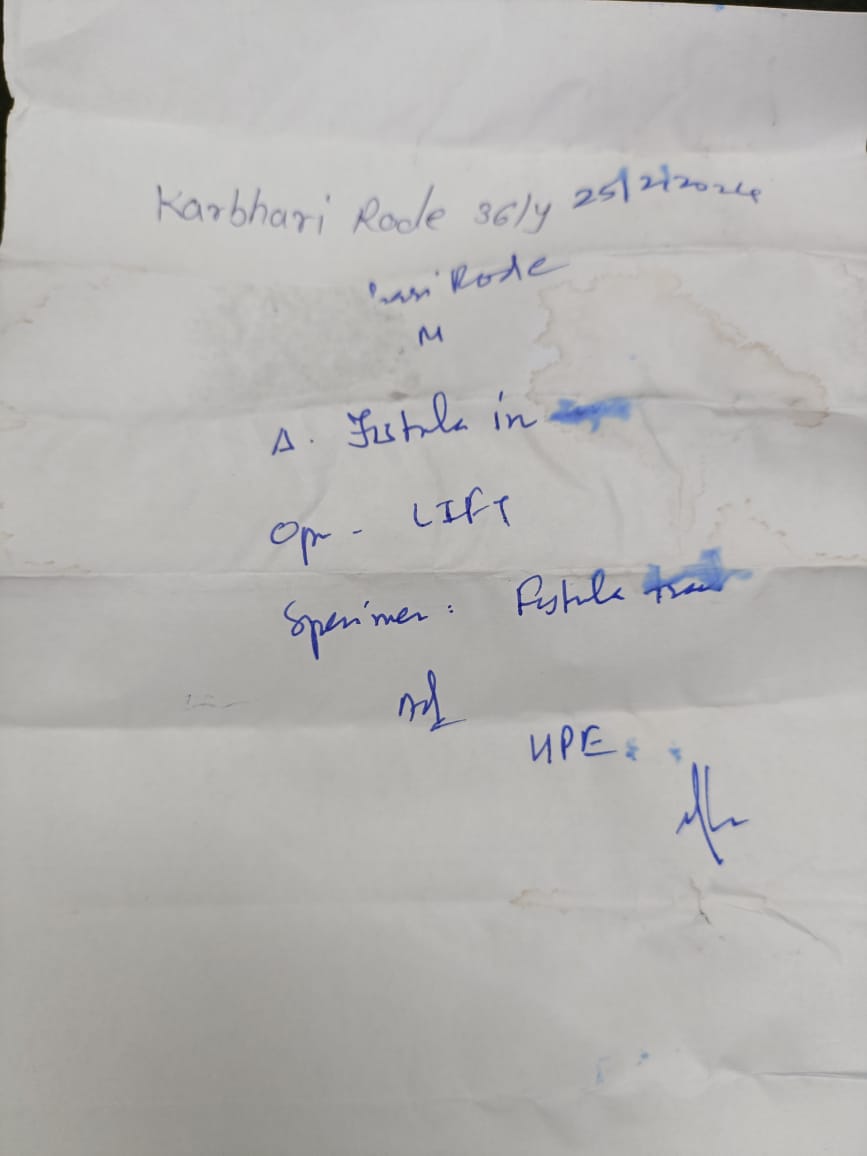 Karbhari Rode 36/y 25/2/2024
Rode
M
Δ. Fistula in
Op - LIFT
Specimen: Fistula
Adv
HPE